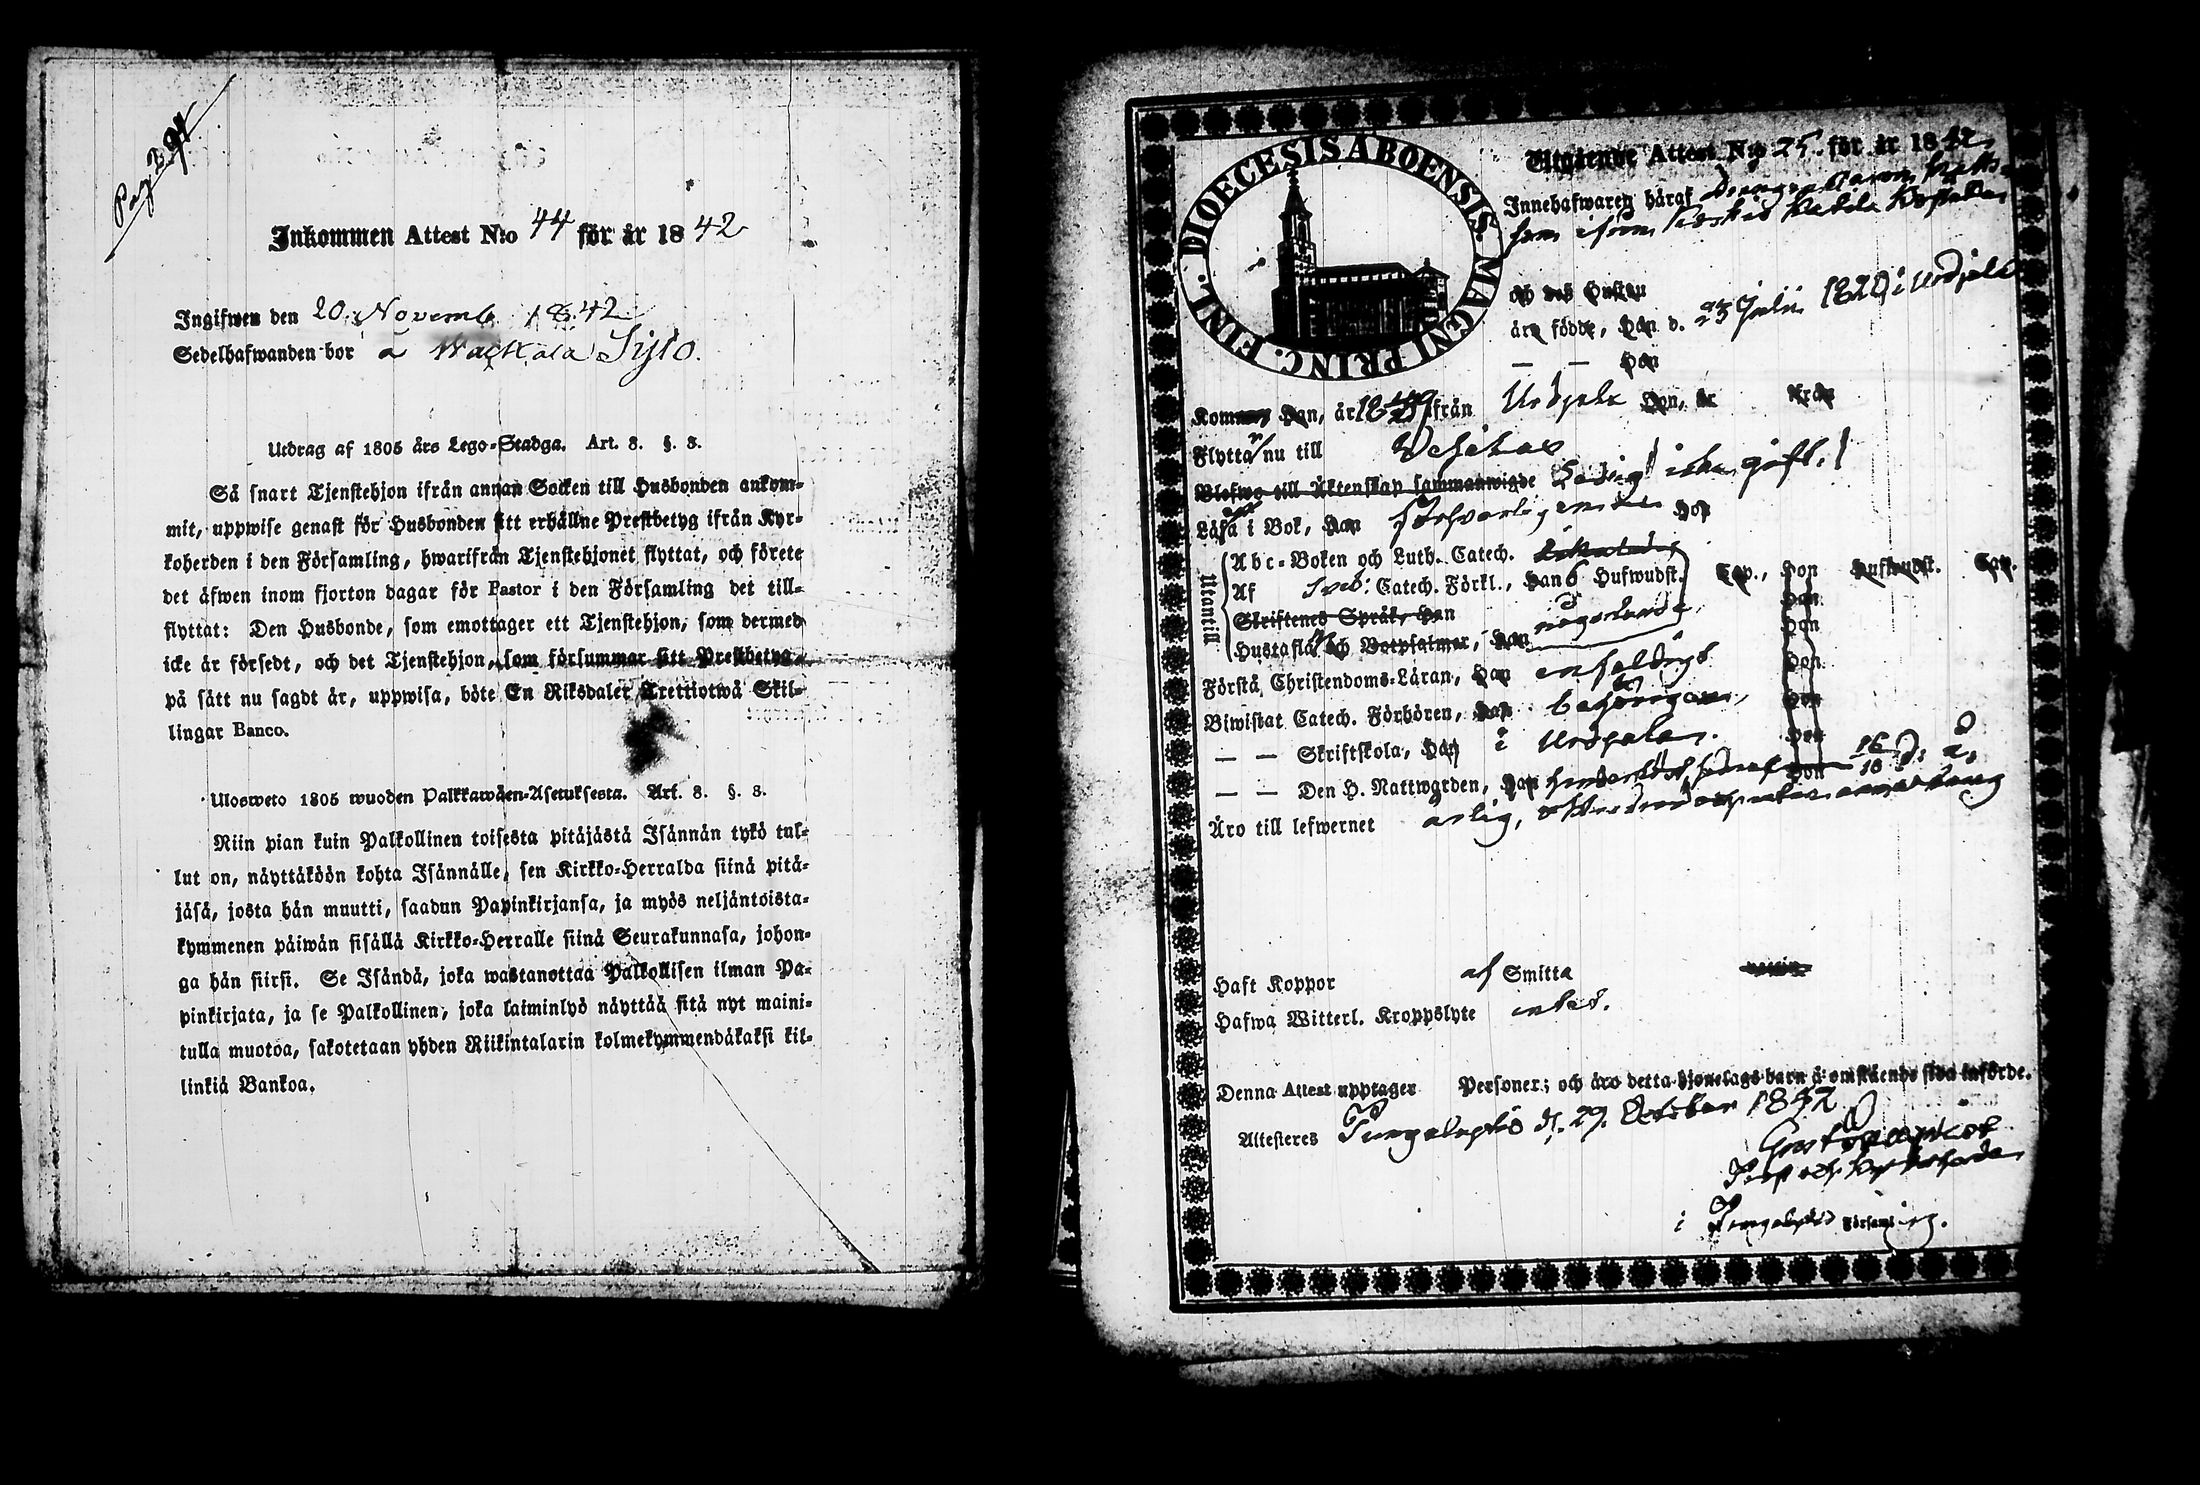 Pag 294
Inkommen Attest N:o 44 för år 1842
Ingifwen den 20. Novemb 1842
Sedelhafwanden bor å Sipilä
Utdrag af 1805 års Lego-Stadga. Art. 8. §. 8.
Så snart Tjenstehjon ifrån annan Socken till Husbonden ankom-
mit, uppwise genast för Husbonden sitt erhållne Prestbetyg ifrån Kyr-
koherden i den Församling, hwarifrån Tjenstehjonet flyttat, och förete
det äfwen inom fjorton dagar för Pastor i den Församling det till-
flyttat: Den Husbonde, som emottager ett Tjenstehjon, som dermed
icke är försedt, och det Tjenstehjon, som försummar sitt Prestbetyg,
på sätt nu sagdt är, uppwisa, böte En Riksdaler Trettiotwå Skil-
lingar Banco.
Ulosweto 1805 wuoden Palkkawäen-Asetuksesta. Art. 8. §. 8.
Niin pian kuin Palkollinen toisesta pitäjästä Isännän tykö tul-
lut on, näyttäköön kohta Isännälle, sen Kirkko-Herralda siinä pitä-
jäsä, josta hän muutti, saadun Papinkirjansa, ja myös neljäntoista-
kymmenen päiwän sisällä Kirkko-Herralle siinä Seurakunnasa, johon-
ga hän siirsi. Se Isändä, joka wastanottaa Palkollisen ilman Pa-
pinkirjata, ja se Palkollinen, joka laiminlyö näyttää sitä nyt maini-
tulla muotoa, sakotetaan yhden Riikintalarin kolmekymmendäkaksi kil-
linkiä Bankoa.
DIOECESIS ABOENSIS. MAGNI PRINC. FINL.
Utgående Attest N:o 25. för år 1842
Innehafwaren häraf Drengen Aaron
och des Hustru
äro födde, Han d. 23 Julii 1820 i Urdjala
— — Hon
Kommen Han, år ifrån Urdjala Hon, år från
Flytta nu till Wesilax
Blefwo till Äktenskap sammanwigde Ledig icke gift.
Läsa i Bok, Han försvarligen Hon
Utantill
Abc-Boken och Luth. Catech.
Af Sveb: Catech. Förkl., Han 6 Hufwudst. Cap., Hon Hufwudst. Cap.
Skriftenes Språk, Han Hon
Hustafla och Botpsalmer, Han någorlunda Hon
Förstå Christendoms-Läran, Han enfaldigt Hon
Biwistat Catech. Förhören, Han behörigen, Hon
— — Skriftskola, Han i Urdjala. Hon
— — Den H. Nattwarden, Han Hon 16/10 d: å.
Äro till lefwernet ärlig,
Haft Koppor af Smitta
Hafwa Witterl. Kroppslyte intet.
Denna Attest upptager Personer; och äro detta hjonelags barn å omstående sida införde.
Attesteres Pungalaitio d. 29. October 1842
Prost och Kyrkoherde
i Pungalaitio Församling.